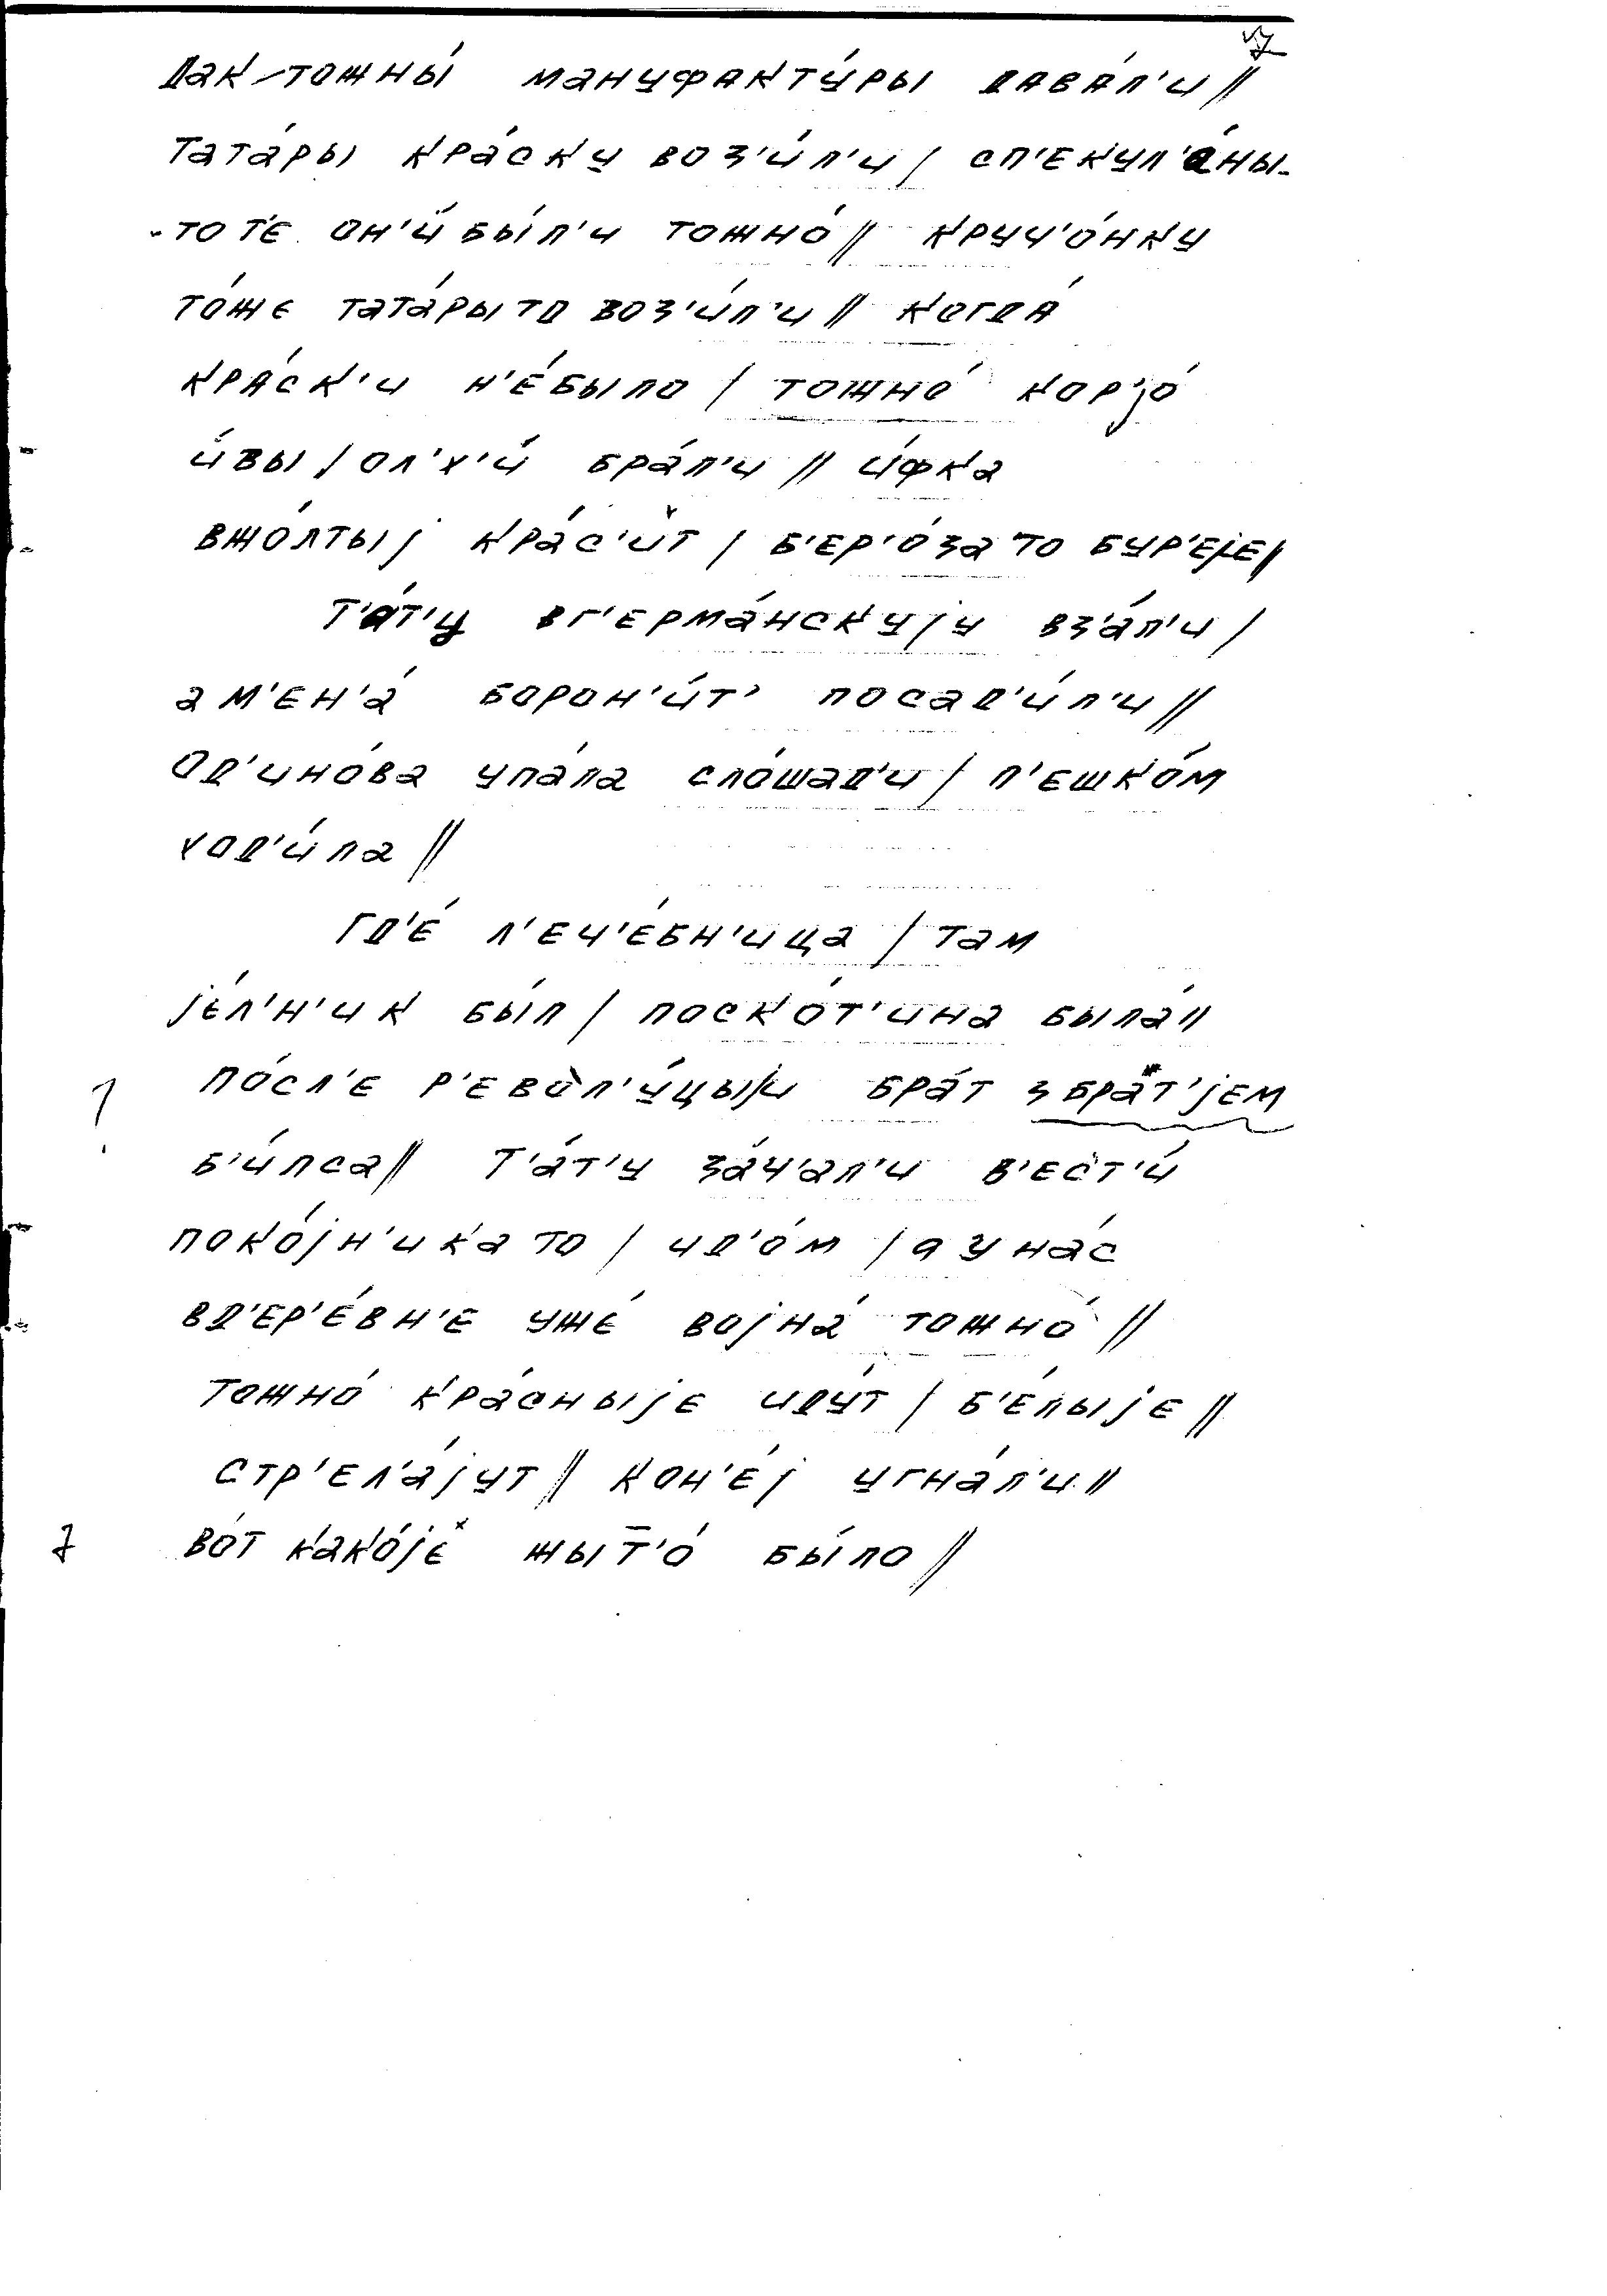 7
Дак тожны́ мануфакту́ры дава́л'и //
Тата́ры кра́ску воз'и́л'и / сп'екул'а́ны-
-то т'е он'и́ бы́л'и тожно́ // круч'о́нку
то́же тата́ры то воз'и́л'и // когда́
кра́ск'и н'е́было / тожно́ кор'jо́
и́вы / ол'х'и́ бра́л'и // и́фка
вжо́лтыj кра́с'ит / б'ер'о́за то бур'еjе //
Т'а́т'у вг'ерма́нскуjу вз'а́л'и /
а м'ен'а́ борон'и́т' посад'и́л'и //
Од'ино́ва упа́ла сло́шад'и / п'ешко́м
ход'и́ла //
Гд'е́ л'еч'е́бн'ица / там
jе́л'н'ик бы́л / поско́т'ина была́ //
по́сл'е р'евол'у́цыjи бра́т з бра́т'jем
? б'и́лса // Т'а́т'у за́ч'ал'и в'ест'и́
поко́jн'ика то / ид'о́м / а у на́с
вд'ер'е́вн'е уже́ воjна́ тожно́ //
тожно́ кра́сныjе иду́т / б'е́лыjе //
стр'ел'а́jут // кон'е́j угна́л'и //
7 во́т како́jе жыт̄'о́ бы́ло //